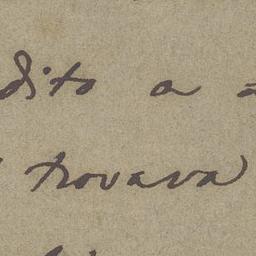 dito a
trovava